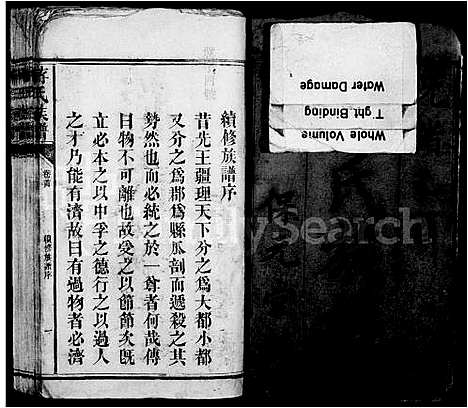 續修族譜序
昔先王疆理天下分之爲大都小都
又分之爲郡爲縣瓜剖而遞殺之其
勢然也而必統之於一尊者何哉傳
曰物不可離也故受之以節節次既
立必本之以中孚之德行之以過人
之才乃能有濟故曰有過物者必濟
氏族譜
卷首
續修族譜序
一
Water Damage
Tight Binding
Whole Volume
FamilySearch